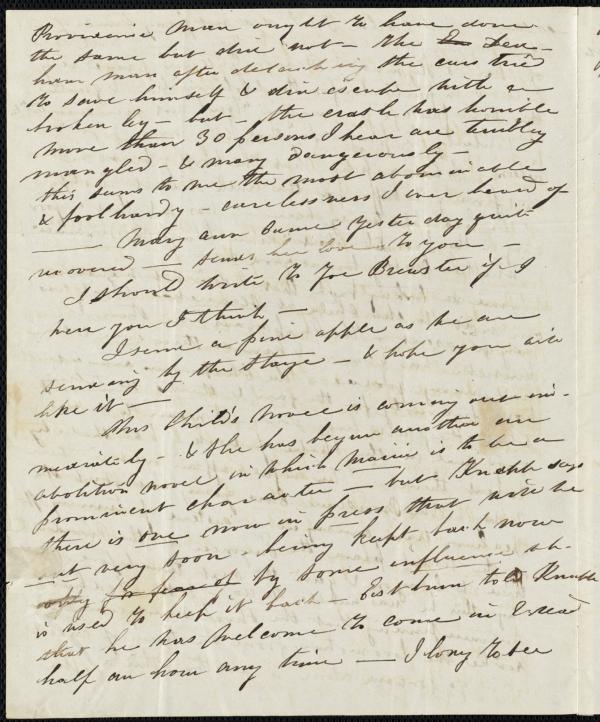 Providence man ought to have done
the same but did not – the Ded-
ham man after detaching the cars tried
to save himself & did escape with a
broken leg – but – the crash was horrible
more than 30 persons I hear are terribly
mangled – & many dangerously –
this seems to me the most abominable
& fool hardy – carelessness I ever heard of
— Mary ann came yesterday quite
recovered — sends her love to you –
I should write to Joe Brewster if I
were you I think –
I send a pine apple as we are
sending by the Stage – & hope you will
like it –
Mrs Child's Novel is coming out im-
mediately – & She has begun another an
abolition novel in which Maria is to be a
prominent character – but Knapp says
there is one now in press that will be
out very soon – being kept back now
only for fear of by some influence wh.
is used to keep it back – Eastburn told Knapp
that he was welcome to come in & read
half an hour any time — I long to see